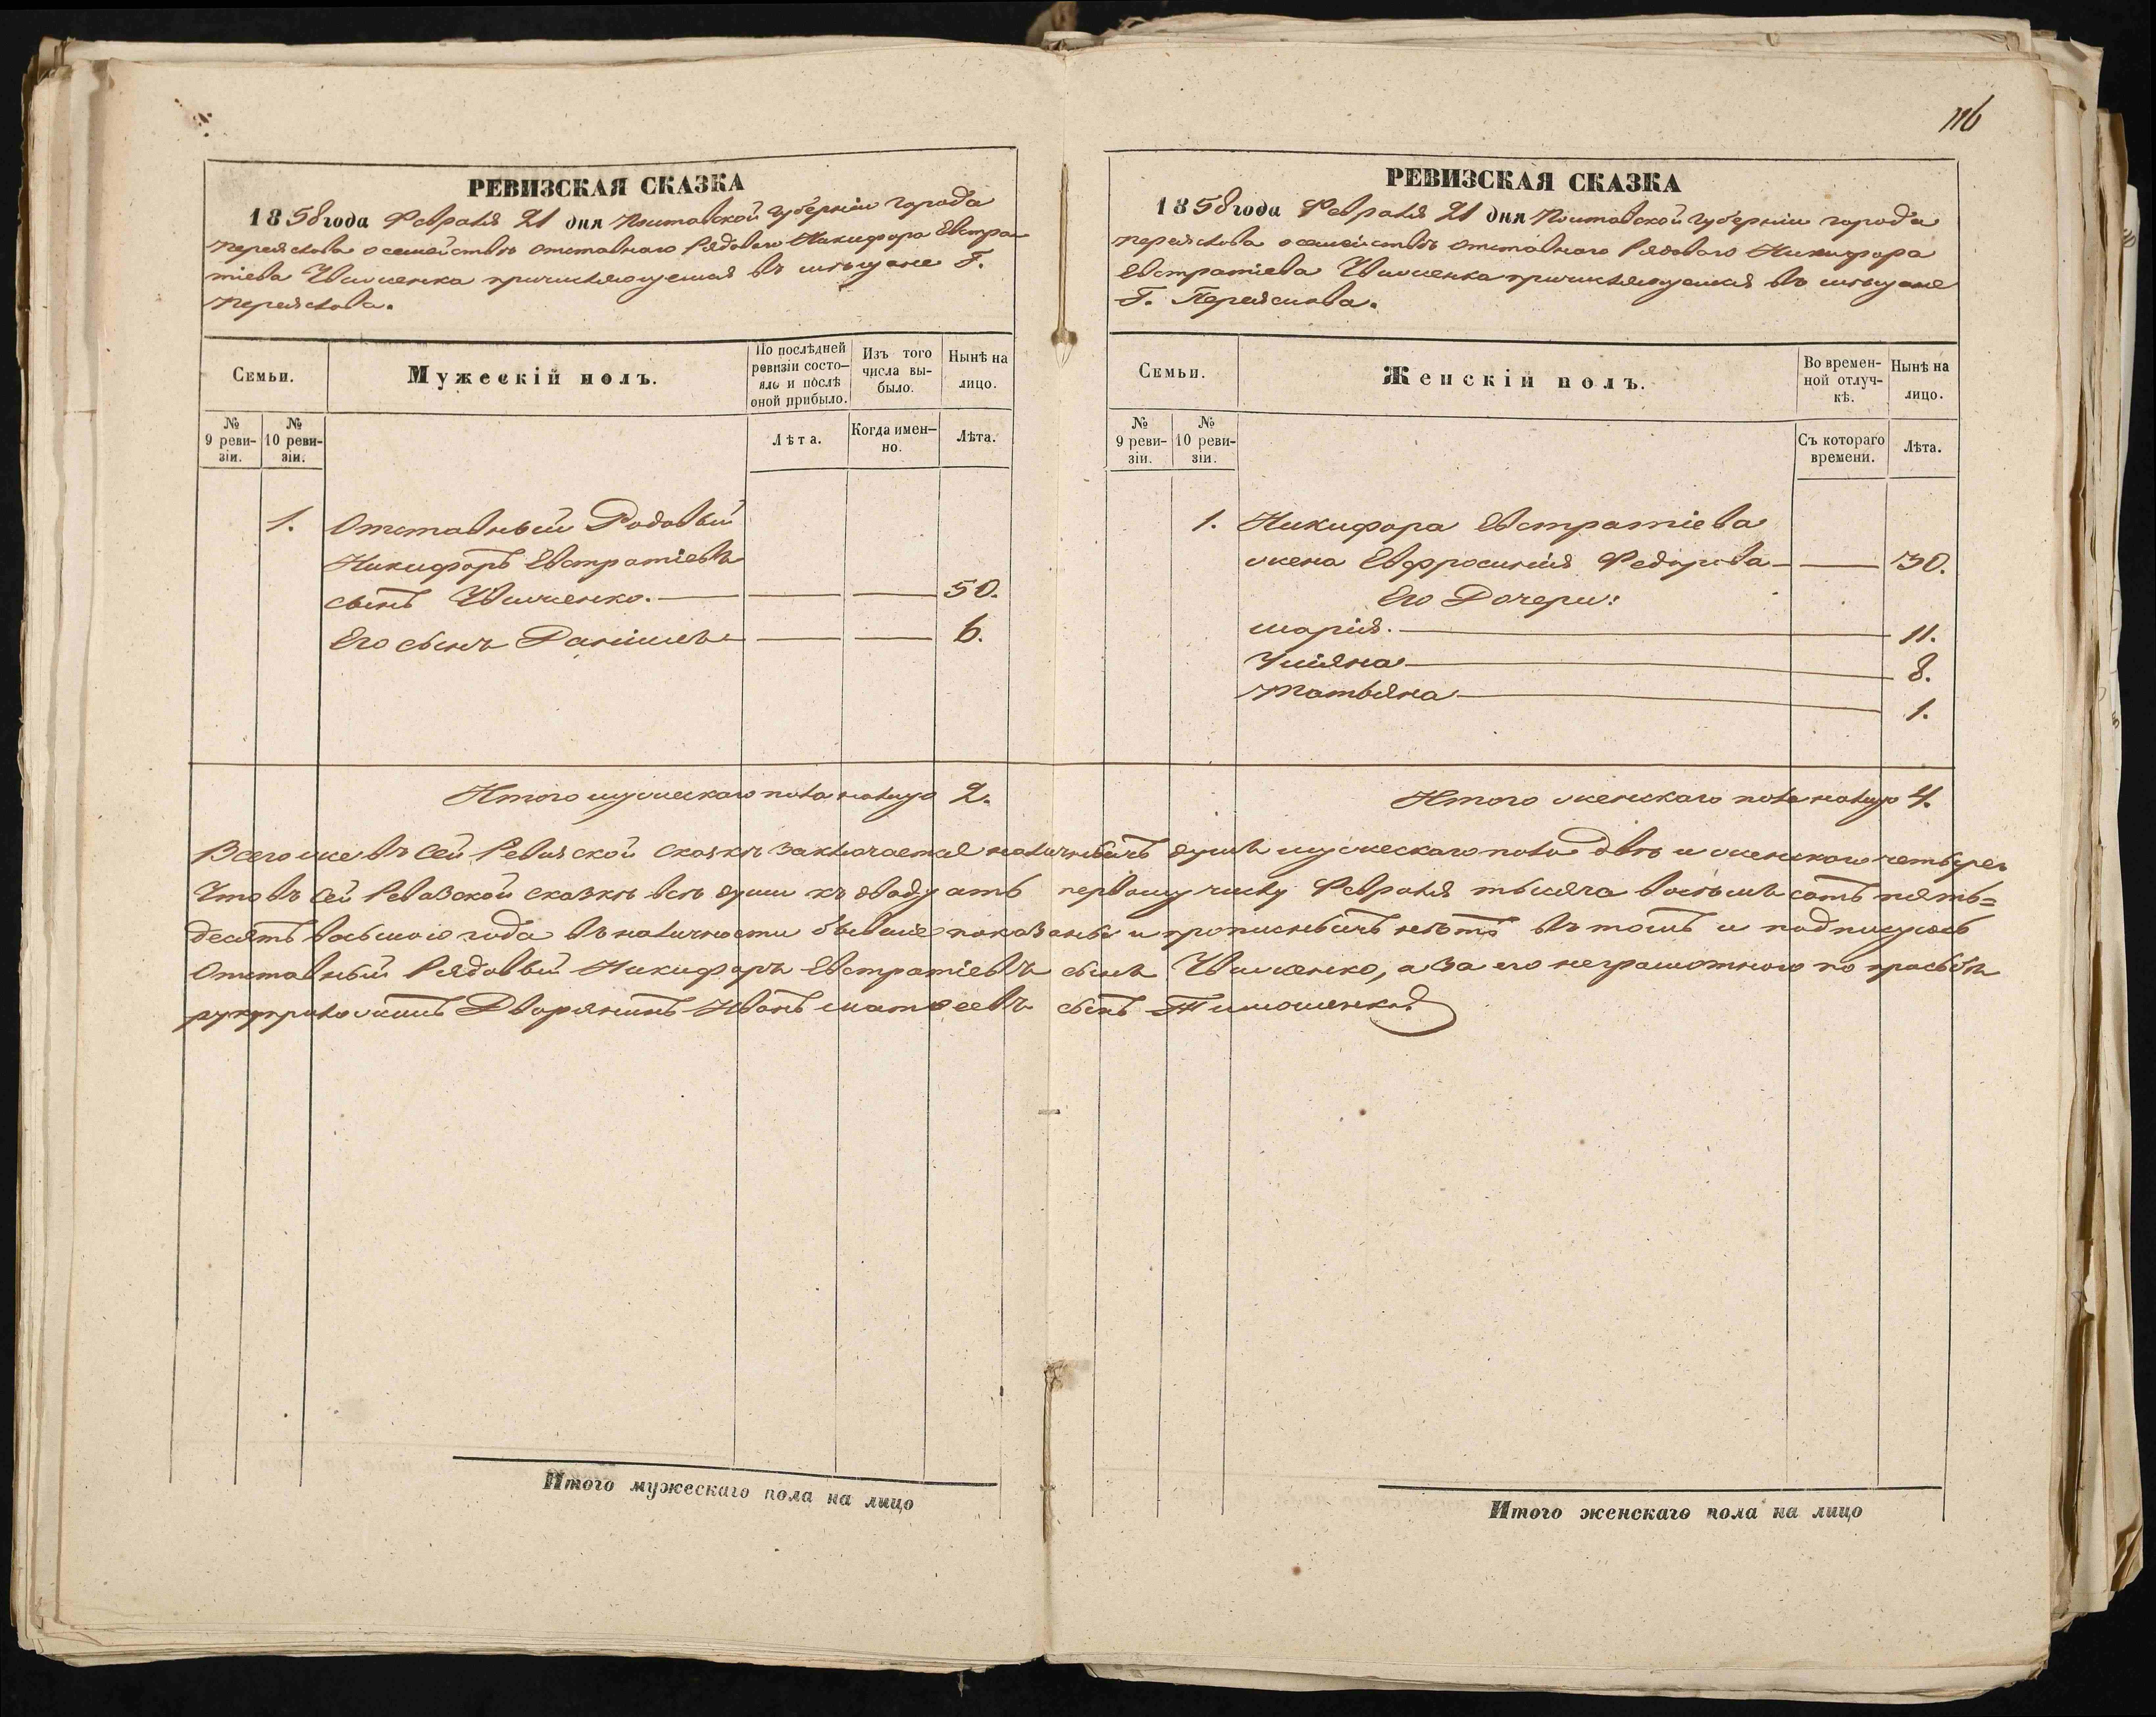 116
РЕВИЗСКАЯ СКАЗКА
1858 года Февраля 21 дня Полтавской Губерніи города
Переяслова о семействѣ отставнаго Рядового Никифора Евстра-
тіева Ивченка причисляющемся въ мѣщане Г.
Переяслова.
Семьи.
Мужескій полъ.
По послѣдней ревизіи состо-яло и послѣ оной прибыло.
Изъ того числа вы-было.
Нынѣ на лицо.
№ 9 реви-зіи.
№ 10 реви-зіи.
Лѣта.
Когда имен-но.
Лѣта.
1. Отставный Рядовый
Никифоръ Евстратіевъ
сынъ 50.
Его сынъ Даніилъ 6.
Итого мужескаго пола налицо 2.
РЕВИЗСКАЯ СКАЗКА
1858 года Февраля 21 дня Полтавской Губерніи города
Переяслова о семействѣ отставнаго Рядоваго Никифора
Евстратіева причисляющемся въ мѣщане
Г. Переяслова.
Семьи.
Женскій полъ.
Во времен-ной отлуч-кѣ.
Нынѣ на лицо.
№ 9 реви-зіи.
№ 10 реви-зіи.
Съ котораго времени.
Лѣта.
1. Никифора Евстратіева
жена Евфросинія Федорова 30.
Его Дочери:
Марія. 11.
Уліяна 8.
Татьяна 1.
Итого женскаго пола налицо 4.
Всего же въ сей Ревизской сказкѣ заключается наличныхъ душъ мужескаго пола двѣ и женскаго четыре.
Что въ сей Ревизской сказкѣ всѣ души къ двадцать первому числу Февраля тысяча восемь сотъ пять=
десятъ восьмого года въ наличности бывшіе показаны и прописныхъ нѣтъ въ томъ и подписуюсь
Отставный Рядовый Никифоръ Евстратіевъ сынъ а за его неграмотного по прозьбѣ
руку приложилъ Дворянинъ Иванъ Матвеевъ сынъ Тимошенко
Итого мужескаго пола на лицо
Итого женскаго пола на лицо